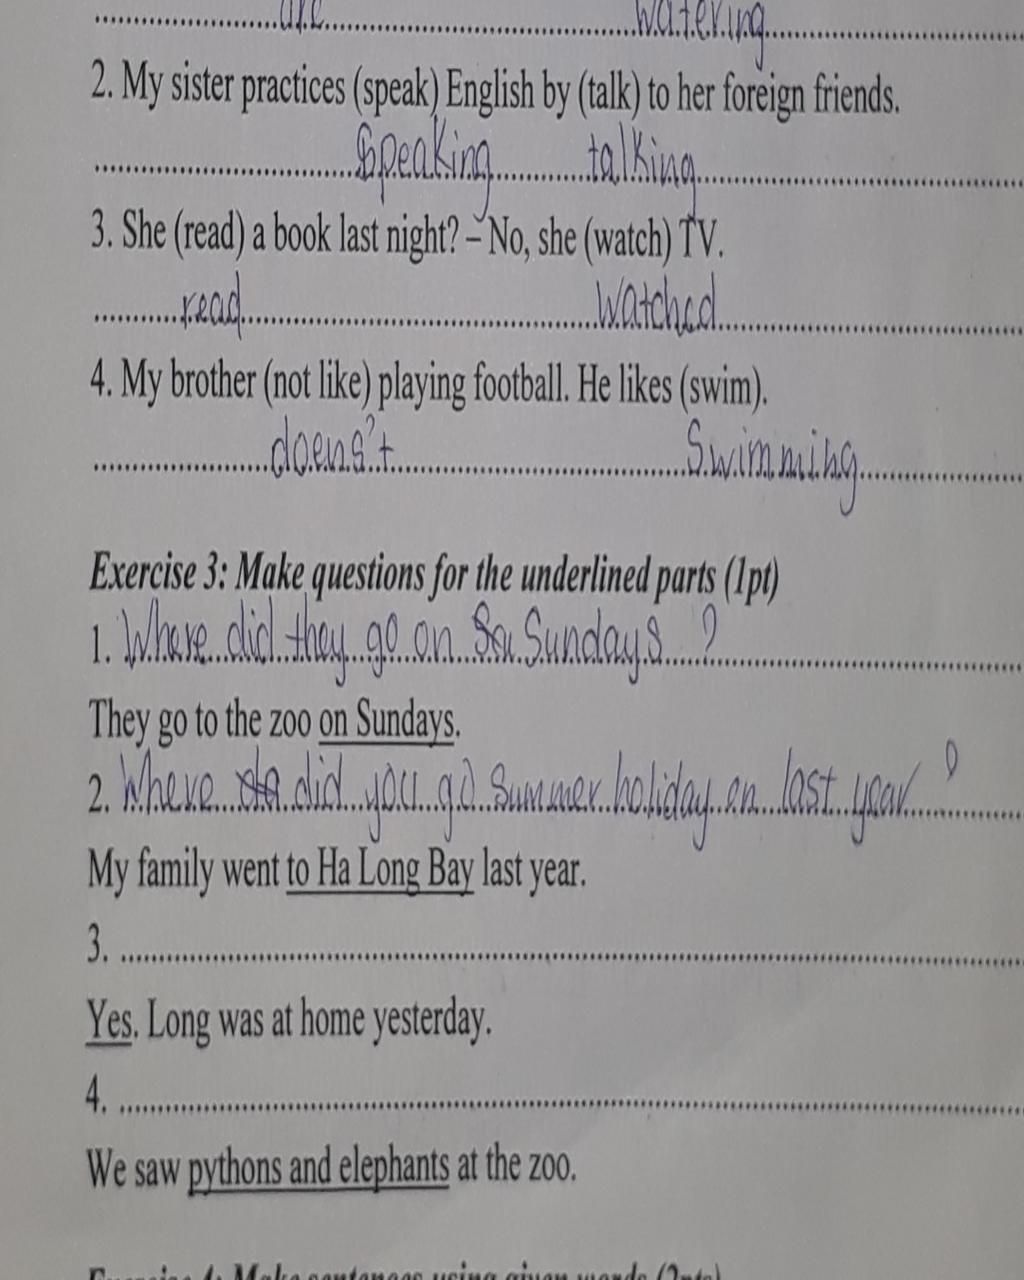 are watering
2. My sister practices (speak) English by (talk) to her foreign friends.
speaking talking
3. She (read) a book last night? – No, she (watch) TV.
read watched
4. My brother (not like) playing football. He likes (swim).
doens't Swimming
Exercise 3: Make questions for the underlined parts (1pt)
1. Where did they go on Sundays ?
They go to the zoo on Sundays.
2. Where did you go summer holiday on last year ?
My family went to Ha Long Bay last year.
3.
Yes. Long was at home yesterday.
4.
We saw pythons and elephants at the zoo.
Exercise 4: Make sentences using given words (2pts)